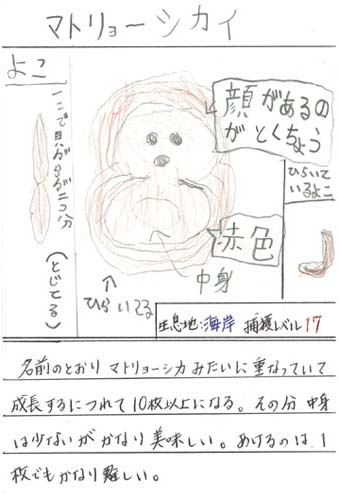 マトリョーシカイ
よこ
(とじてる)
顔があるの
がとくちょう
ひらいて
いるよこ
赤色
中身
ひらいてる
生息地:海岸 捕獲レベル17
名前のとおりマトリョーシカみたいに重なっていて
成長するにつれて10枚以上になる。その分中身
は少ないがかなり美味しい。あけるのは、1
枚でもかなり難しい。